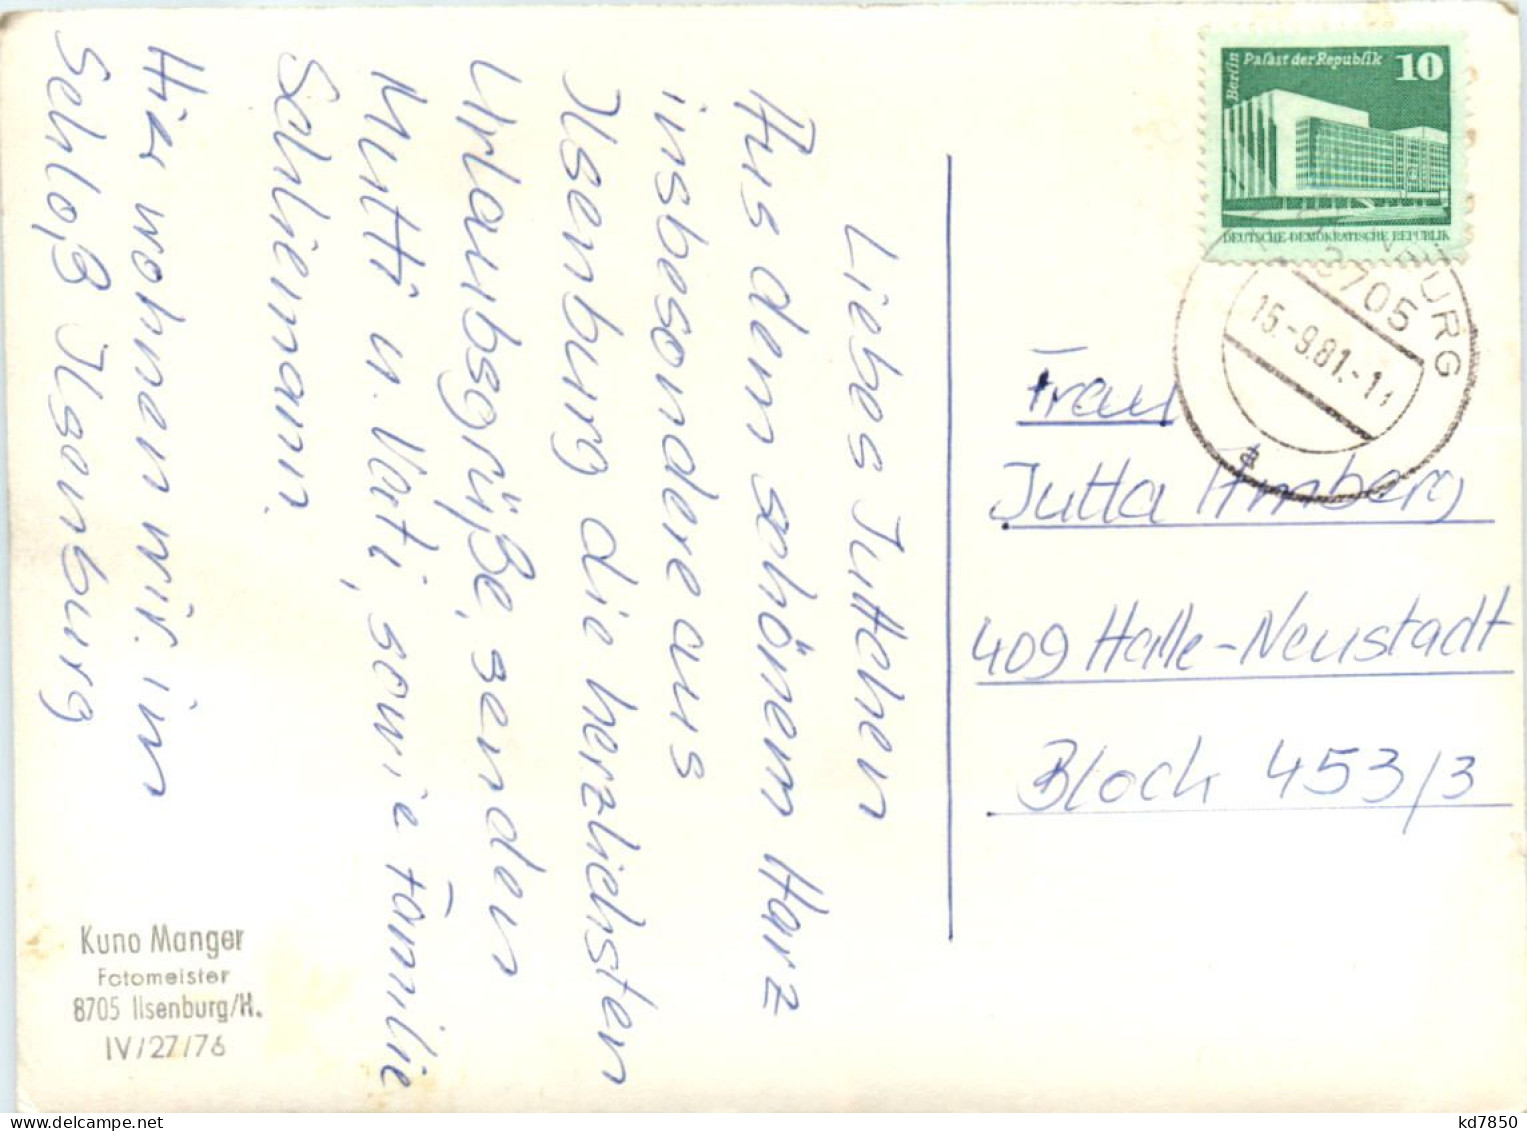 Liebes Juttchen
Aus dem schönem Harz
insbesondere aus
Ilsenburg die herzlichsten
Urlaubsgrüße, senden
Mutti u. Vati, sowie Familie
Schliemann.
Hier wohnen wir im
Schloß Ilsenburg
Kuno Manger
Fotomeister
8705 Ilsenburg/H.
IV/27/76
Berlin Palast der Republik 10
DEUTSCHE DEMOKRATISCHE REPUBLIK
3705
15.-9.81.-1
a
Frau
Jutta Amberg
409 Halle-Neustadt
Block 453/3
kd7850